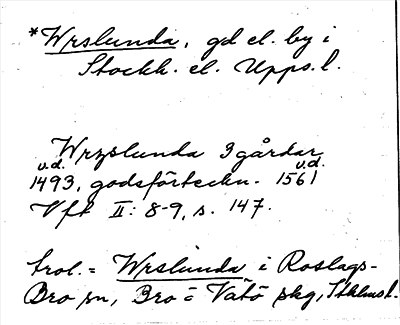 *Wrslunda, gd el. by i
Stockh. el. Upps. l.
Wrzslunda 3 gårdar
v.d. v.d.
1493, godsförteckn. 1561
Vft II: 8-9, s. 147.
trol. = Wrslunda i Roslags-
Bro sn, Bro o Vätö skg, Sthlms l.